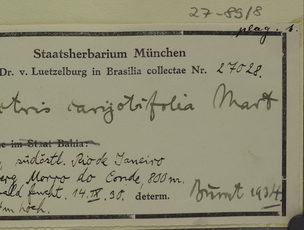 27-89/8
plag. 1.
Staatsherbarium München
Dr. v. Luetzelburg in Brasilia collectae Nr. 27028.
ctris caryotifolia Mart
e im Staat Bahia:
südöstl. Rio de Janeiro
erg Morro do Conde, 800 m.
ald feucht. 14. IX. 30. determ. Burret 1934
m hoch.